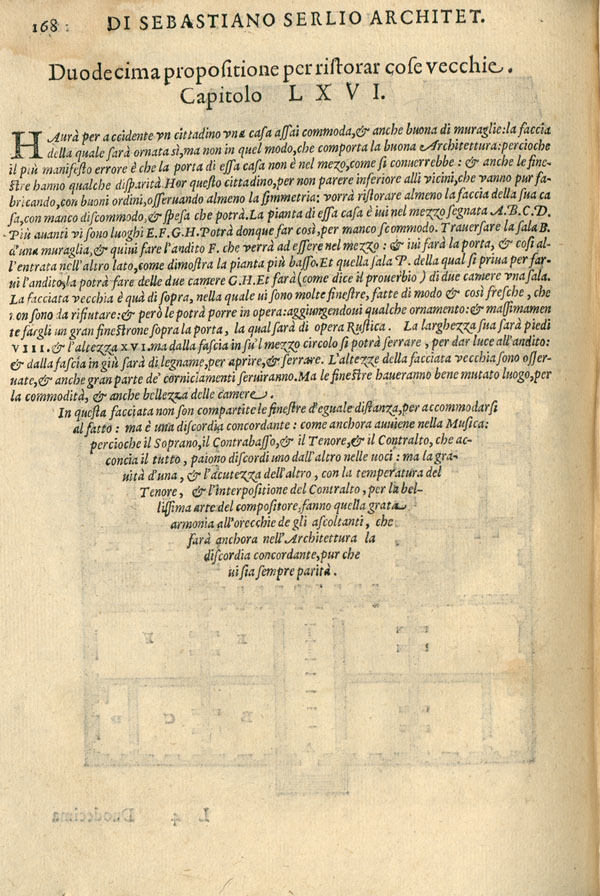 168 DI SEBASTIANO SERLIO ARCHITET.
Duodecima propositione per ristorar cose vecchie.
Capitolo LXVI.
HAurà per accidente vn cittadino vna casa assai commoda, & anche buona di muraglie: la faccia
della quale sarà ornata sì, ma non in quel modo, che comporta la buona Architettura: percioche
il più manifesto errore è che la porta di essa casa non è nel mezo, come si conuerrebbe: & anche le fine-
stre hanno qualche disparità. Hor questo cittadino, per non parere inferiore alli vicini, che vanno pur fa-
bricando, con buoni ordini, osseruando almeno la simmetria: vorrà ristorare almeno la faccia della sua ca
sa, con manco discommodo, & spesa che potrà. La pianta di essa casa è iui nel mezzo segnata A.B.C.D.
Più auanti vi sono luoghi E.F.G.H. Potrà donque far così, per manco scommodo. Trauersare la sala B.
d'una muraglia, & quiui fare l'andito F. che verrà ad essere nel mezzo: & iui farà la porta, & così al-
l'entrata nell'altro lato, come dimostra la pianta più basso. Et quella sala P. della qual si priua per far-
ui l'andito, la potrà fare delle due camere G.H. Et farà (come dice il prouerbio) di due camere vna sala.
La facciata vecchia è quà di sopra, nella quale ui sono molte finestre, fatte di modo & così fresche, che
non son da rifiutare: & però le potrà porre in opera: aggiungendoui qualche ornamento: & massimamen
te fargli un gran finestrone sopra la porta, la qual sarà di opera Rustica. La larghezza sua sarà piedi
VIII. & l'altezza XVI. ma dalla fascia in su'l mezzo circolo si potrà serrare, per dar luce all'andito:
& dalla fascia in giù sarà di legname, per aprire, & serrare. L'altezze della facciata vecchia sono osser-
uate, & anche gran parte de' corniciamenti seruiranno. Ma le finestre haueranno bene mutato luogo, per
la commodità, & anche bellezza delle camere.
In questa facciata non son compartite le finestre d'eguale distanza, per accommodarsi
al fatto: ma è una discordia concordante: come anchora auuiene nella Musica:
percioche il Soprano, il Contrabasso, & il Tenore, & il Contralto, che ac-
concia il tutto, paiono discordi uno dall'altro nelle uoci: ma la gra-
uità d'una, & l'acutezza dell'altro, con la temperatura del
Tenore, & l'interpositione del Contralto, per la bel-
lissima arte del compositore, fanno quella grata
armonia all'orecchie de gli ascoltanti, che
farà anchora nell'Architettura la
discordia concordante, pur che
ui sia sempre parità.
E F
B C D
L 4 Duodecima